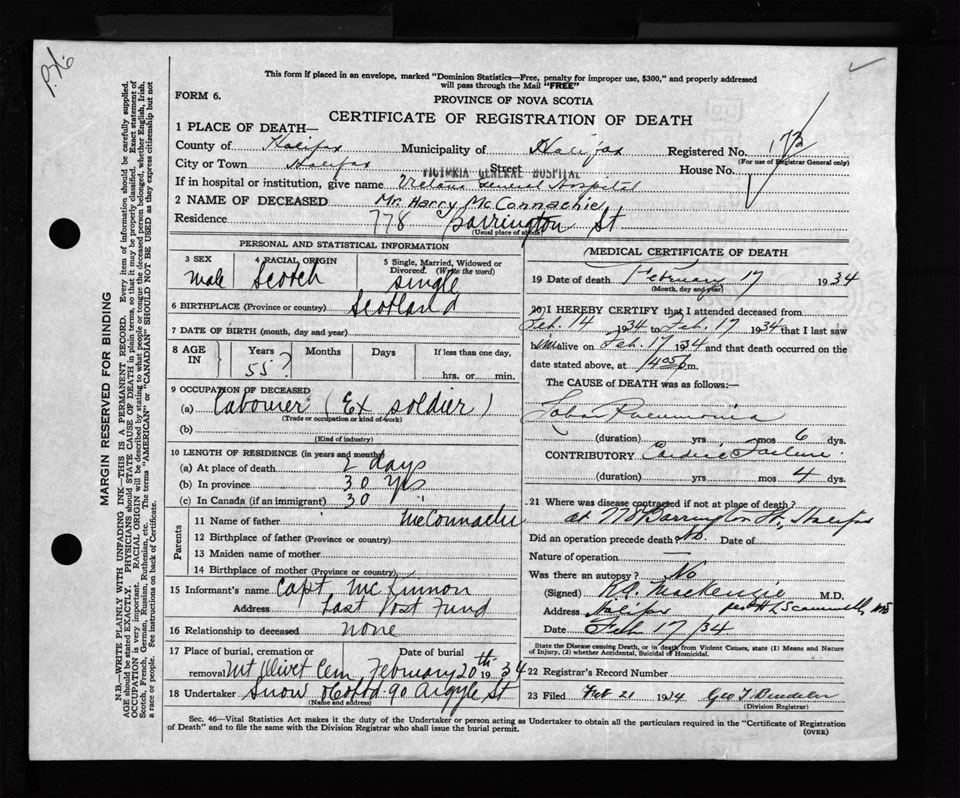 P.76
This form if placed in an envelope, marked "Dominion Statistics—Free, penalty for improper use, $300," and properly addressed
will pass through the Mail "FREE"
FORM 6.
PROVINCE OF NOVA SCOTIA
CERTIFICATE OF REGISTRATION OF DEATH
1 PLACE OF DEATH—
County of Halifax Municipality of Halifax Registered No. 173
(For use of Registrar General only)
City or Town Halifax Street House No.
VICTORIA GENERAL HOSPITAL
If in hospital or institution, give name Victoria General Hospital
2 NAME OF DECEASED Mr. Harry McConnachie
Residence 778 Barrington St
(Usual place of abode)
PERSONAL AND STATISTICAL INFORMATION
3 SEX male
4 RACIAL ORIGIN Scotch
5 Single, Married, Widowed or Divorced. (Write the word) single
6 BIRTHPLACE (Province or country) Scotland
7 DATE OF BIRTH (month, day and year)
8 AGE IN Years Months Days If less than one day,
55? hrs. or min.
9 OCCUPATION OF DECEASED
(a) Labourer (Ex soldier)
(Trade or occupation or kind of work)
(b)
(Kind of industry)
10 LENGTH OF RESIDENCE (in years and months)
(a) At place of death 2 days
(b) In province 30 Yrs
(c) In Canada (if an immigrant) 30 "
Parents
11 Name of father McConnachie
12 Birthplace of father (Province or country)
13 Maiden name of mother
14 Birthplace of mother (Province or country)
15 Informant's name Capt McKinnon
Address Last Post Fund
16 Relationship to deceased none
17 Place of burial, cremation or removal Mt Olivet Cem Date of burial February 20th 1934
18 Undertaker Snow & Co Ltd 90 Argyle St
(Name and address)
MEDICAL CERTIFICATE OF DEATH
19 Date of death February 17 1934
(Month, day and year)
20 I HEREBY CERTIFY that I attended deceased from
Feb. 14 1934 to Feb. 17 1934 that I last saw
him alive on Feb. 17 1934 and that death occurred on the
date stated above, at m.
The CAUSE of DEATH was as follows:
Lobar Pneumonia
(duration) yrs mos 6 dys.
CONTRIBUTORY Cardiac Failure.
(duration) yrs mos 4 dys.
21 Where was disease contracted if not at place of death?
at Barrington St, Halifax
Did an operation precede death? No. Date of
Nature of operation —
Was there an autopsy? No
(Signed) MacKenzie M.D.
Address Halifax per
Date Feb 17/34
State the Disease causing Death, or in death from Violent Causes, state (1) Means and Nature
of Injury, (2) whether Accidental, Suicidal or Homicidal.
22 Registrar's Record Number
23 Filed Feb 21 1934 Geo
(Division Registrar)
Sec. 46—Vital Statistics Act makes it the duty of the Undertaker or person acting as Undertaker to obtain all the particulars required in the "Certificate of Registration
of Death" and to file the same with the Division Registrar who shall issue the burial permit.
(OVER)
MARGIN RESERVED FOR BINDING
N.B.—WRITE PLAINLY WITH UNFADING INK—THIS IS A PERMANENT RECORD. Every item of information should be carefully supplied.
AGE should be stated EXACTLY. PHYSICIANS should STATE CAUSE OF DEATH in plain terms, so that it may be properly classified. Exact statement of
OCCUPATION is very important. RACIAL ORIGIN will be described by stating to what people or tongue the deceased person belonged, whether English, Irish,
Scotch, French, German, Russian, Ruthenian, etc. The terms "AMERICAN" or "CANADIAN" SHOULD NOT BE USED as they express citizenship but not
a race or people. See instructions on back of Certificate.